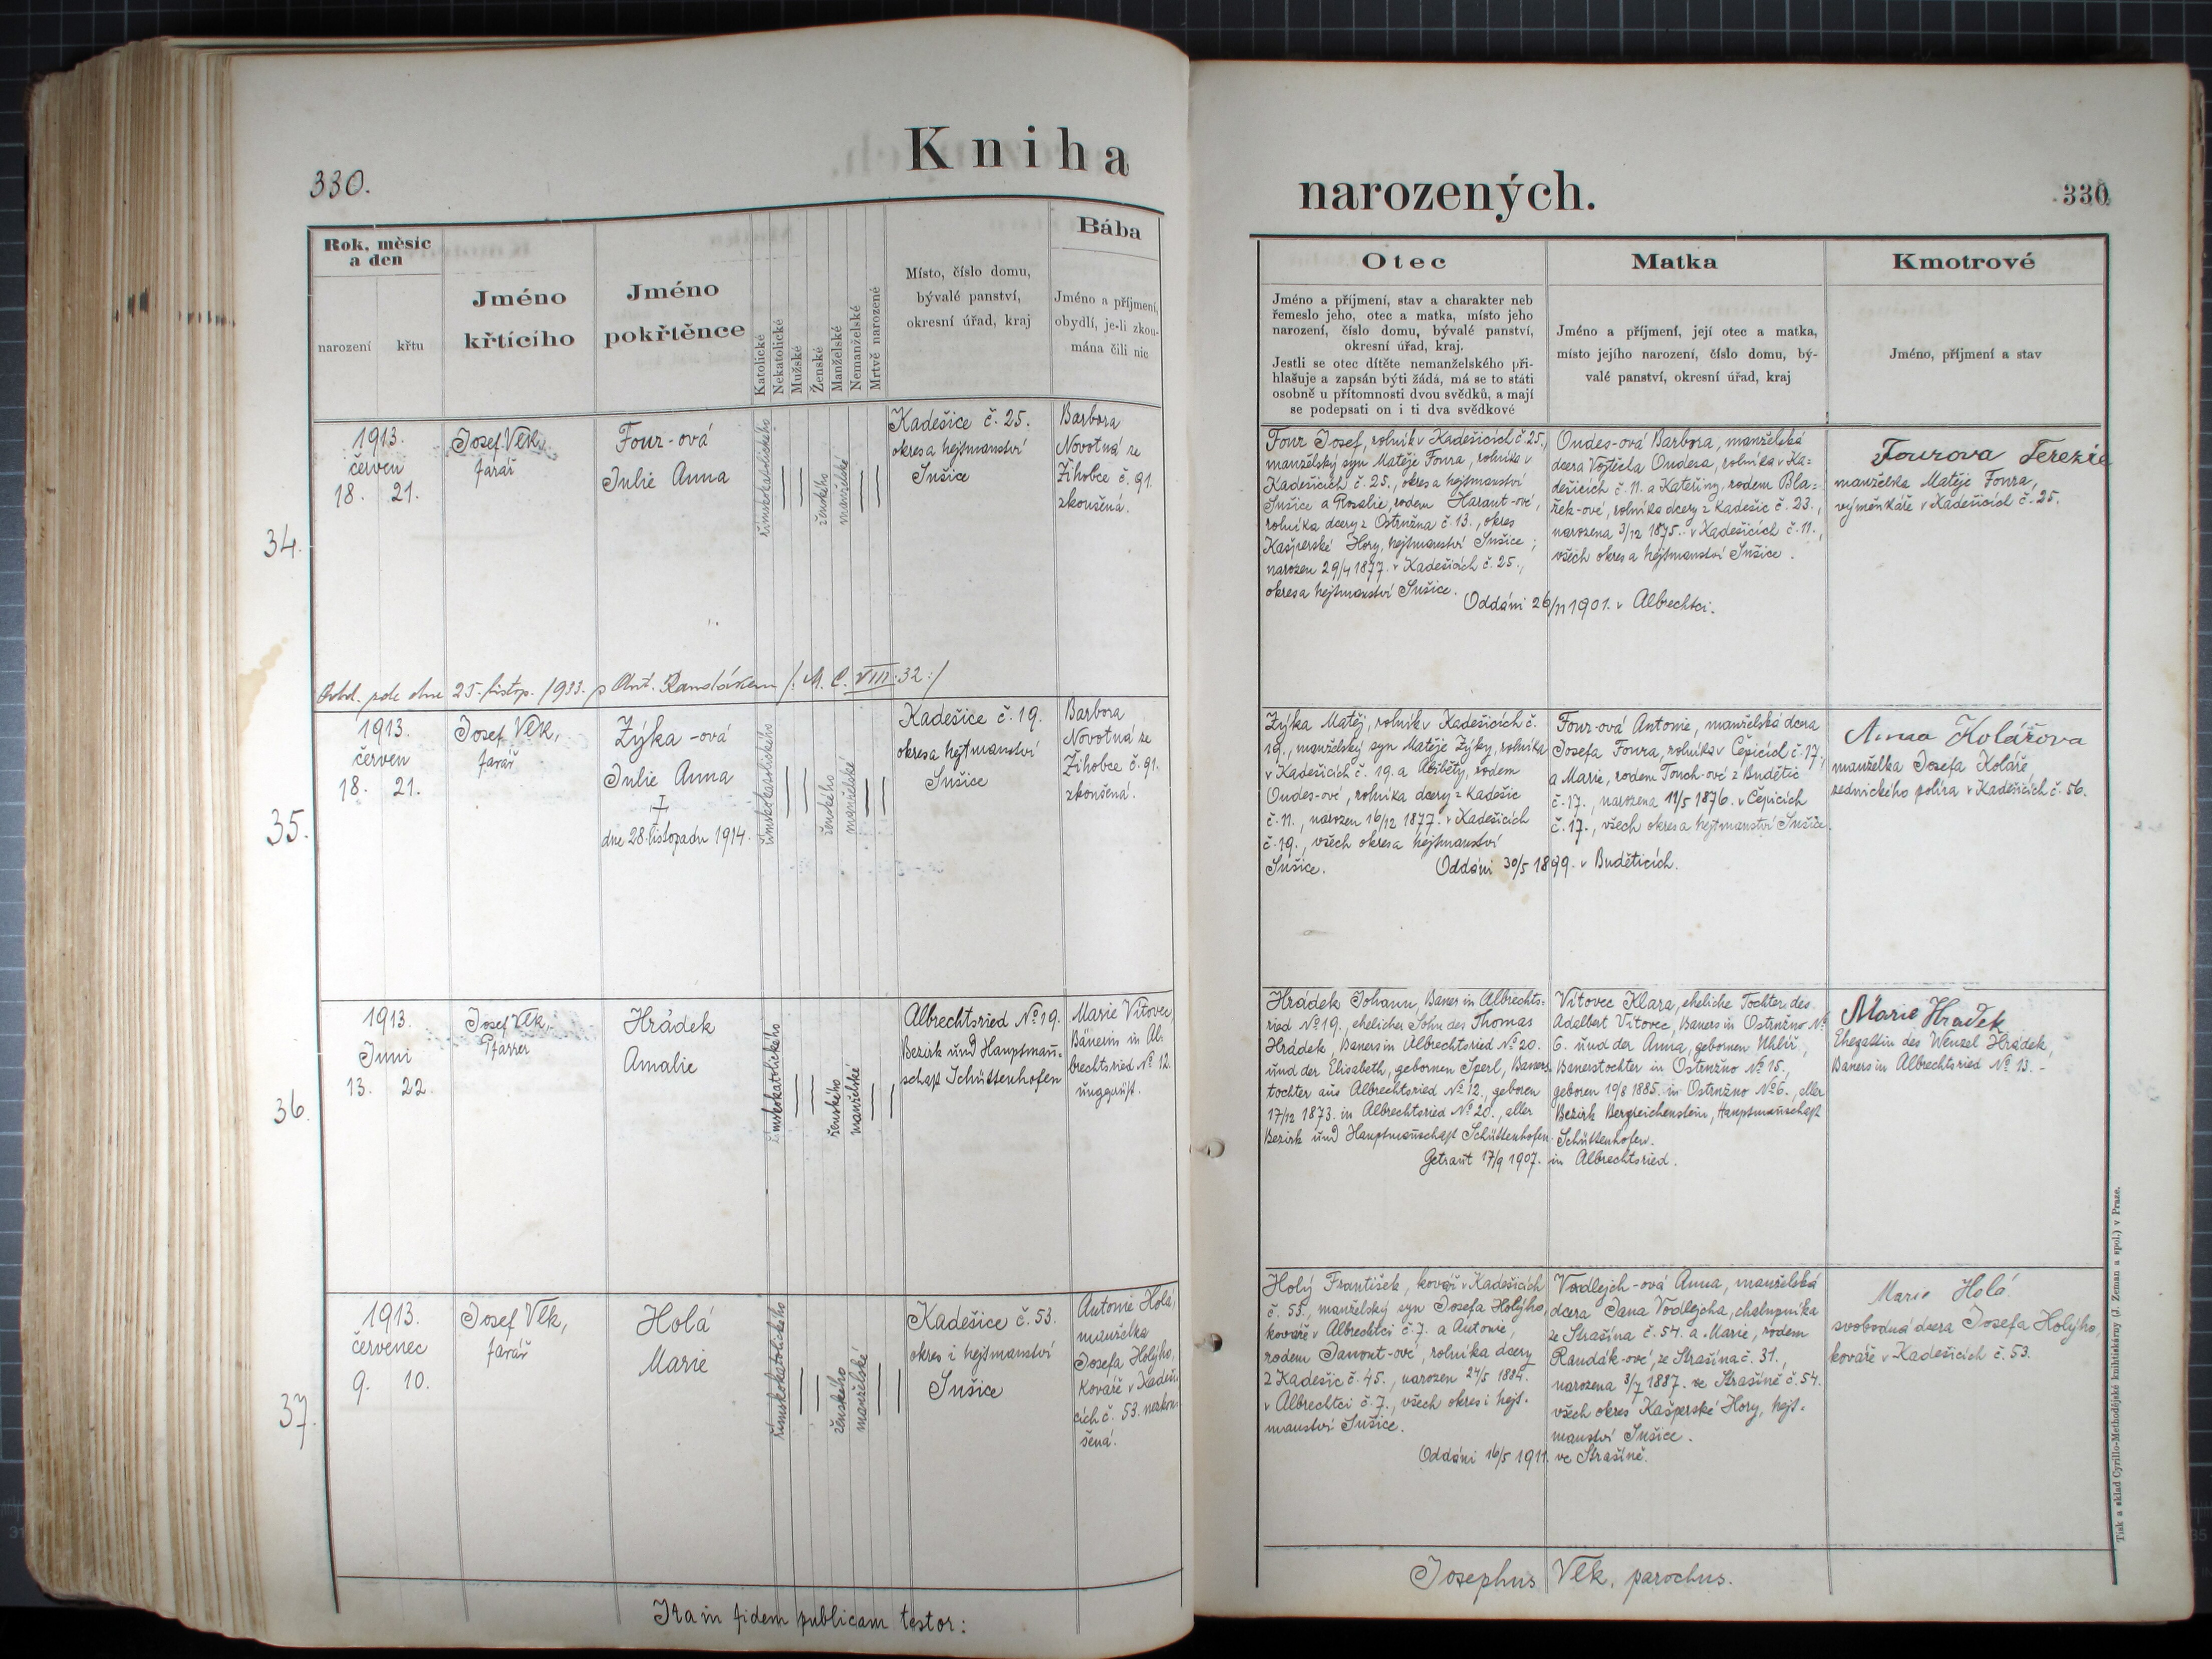 330.
Kniha
Rok, měsíc
a den
narození
křtu
Jméno
křtícího
Jméno
pokřtěnce
Katolické
Nekatolické
Mužské
Ženské
Manželské
Nemanželské
Mrtvě narozené
Místo, číslo domu,
bývalé panství,
okresní úřad, kraj
Bába
Jméno a příjmení,
obydlí, je-li zkou-
mána čili nic
34.
1913.
červen
18. 21.
Josef Vlk,
farář
Four-ová
Julie Anna
římskokatolického
ženského
manželské
Kadešice č. 25.
okres a hejtmanství
Sušice
Barbora
Novotná ze
Žihobce č. 91.
zkoušená.
dne 25. listop. 1933. s Ant. Randákem /: M. C. VIII. 32 :/
35.
1913.
červen
18. 21.
Josef Vlk,
farář
Zýka-ová
Julie Anna
†
dne 28. listopadu 1914.
římskokatolického
ženského
manželské
Kadešice č. 19.
okres a hejtmanství
Sušice
Barbora
Novotná ze
Žihobce č. 91.
zkoušená.
36.
1913.
Juni
13. 22.
Josef Vlk,
Pfarrer
Hrádek
Amalie
římskokatolického
ženského
manželské
Albrechtsried No 19.
Bezirk und Hauptman̄-
schaft Schüttenhofen
Marie Vítovec,
Bäuerin in Al-
brechtsried No 12.
ungeprüft.
37.
1913.
červenec
9. 10.
Josef Vlk,
farář
Holá
Marie
římskokatolického
ženského
manželské
Kadešice č. 53.
okres i hejtmanství
Sušice
Antonie Holá,
manželka
Josefa Holýho,
kováře v Kadeši-
cích č. 53. nezkou-
šená.
Ita in fidem publicam testor:
narozených.
330
Otec
Jméno a příjmení, stav a charakter neb
řemeslo jeho, otec a matka, místo jeho
narození, číslo domu, bývalé panství,
okresní úřad, kraj.
Jestli se otec dítěte nemanželského při-
hlašuje a zapsán býti žádá, má se to státi
osobně u přítomnosti dvou svědků, a mají
se podepsati on i ti dva svědkové
Matka
Jméno a příjmení, její otec a matka,
místo jejího narození, číslo domu, bý-
valé panství, okresní úřad, kraj
Kmotrové
Jméno, příjmení a stav
Four Josef, rolník v Kadešicích č. 25.,
manželský syn Matěje Foura, rolníka v
Kadešicích č. 25., okres a hejtmanství
Sušice a Rosalie, rodem Harant-ové,
rolníka dcery z Ostružna č. 13., okres
Kašperské Hory, hejtmanství Sušice;
narozen 29/4 1877. v Kadešicích č. 25.,
okres a hejtmanství Sušice.
Ondes-ová Barbora, manželská
dcera Vojtěcha Ondesa, rolníka v Ka=
dešicích č. 11. a Kateřiny, rodem Bla=
žek-ové, rolníka dcery z Kadešic č. 23.,
narozena 3/12 1875. v Kadešicích č. 11.,
všech okres a hejtmanství Sušice.
Oddáni 26/11 1901. v Albrechtci.
Fourova Terezie
manželka Matěje Foura,
výměnkáře v Kadešicích č. 25.
Zýka Matěj, rolník v Kadešicích č.
19., manželský syn Matěje Zýky, rolníka
v Kadešicích č. 19. a Alžběty, rodem
Ondes-ové, rolníka dcery z Kadešic
č. 11., narozen 16/12 1877. v Kadešicích
č. 19., všech okres a hejtmanství
Sušice.
Four-ová Antonie, manželská dcera
Josefa Foura, rolníka v Čepicích č. 17.,
a Marie, rodem Touch-ové z Budětic
č. 17., narozena 11/5 1876. v Čepicích
č. 17., všech okres a hejtmanství Sušice.
Oddáni 30/5 1899. v Buděticích.
Anna Kolářova
manželka Josefa Koláře,
zednického políra v Kadešicích č. 56.
Hrádek Johann, Bauer in Albrechts=
ried No 19., ehelicher Sohn des Thomas
Hrádek, Bauers in Albrechtsried No 20.
und der Elisabeth, gebornen Sperl, Bauers-
tochter aus Albrechtsried No 12., geboren
17/12 1873. in Albrechtsried No 20., aller
Bezirk und Hauptman̄schaft Schüttenhofen.
Vítovec Klara, eheliche Tochter des
Adalbert Vítovec, Bauers in Ostružno No
6. und der Anna, gebornen Uhlíř,
Bauerstochter in Ostružno No 15.,
geboren 19/8 1885. in Ostružno No 6., aller
Bezirk Bergreichenstein, Hauptman̄schaft
Schüttenhofen.
Getraut 17/9 1907. in Albrechtsried.
Marie Hradek
Ehegattin des Wenzel Hrádek,
Bauers in Albrechtsried No 13. -
Holý František, kovář v Kadešicích
č. 53., manželský syn Josefa Holýho,
kováře v Albrechtci č. 7. a Antonie,
rodem Janout-ové, rolníka dcery
z Kadešic č. 45., narozen 24/5 1884.
v Albrechtci č. 7., všech okres i hejt-
manství Sušice.
Vodlejch-ová Anna, manželská
dcera Jana Vodlejcha, chalupníka
ze Strašína č. 54. a Marie, rodem
Randák-ové, ze Strašína č. 31.,
narozena 3/7 1887. ve Strašíně č. 54.
všech okres Kašperské Hory, hejt-
manství Sušice.
Oddáni 16/5 1911. ve Strašíně.
Marie Holá
svobodná dcera Josefa Holýho,
kováře v Kadešicích č. 53.
Josephus Vlk, parochus.
Tisk a sklad Cyrillo-Methodějské knihtiskárny (J. Zeman a spol.) v Praze.